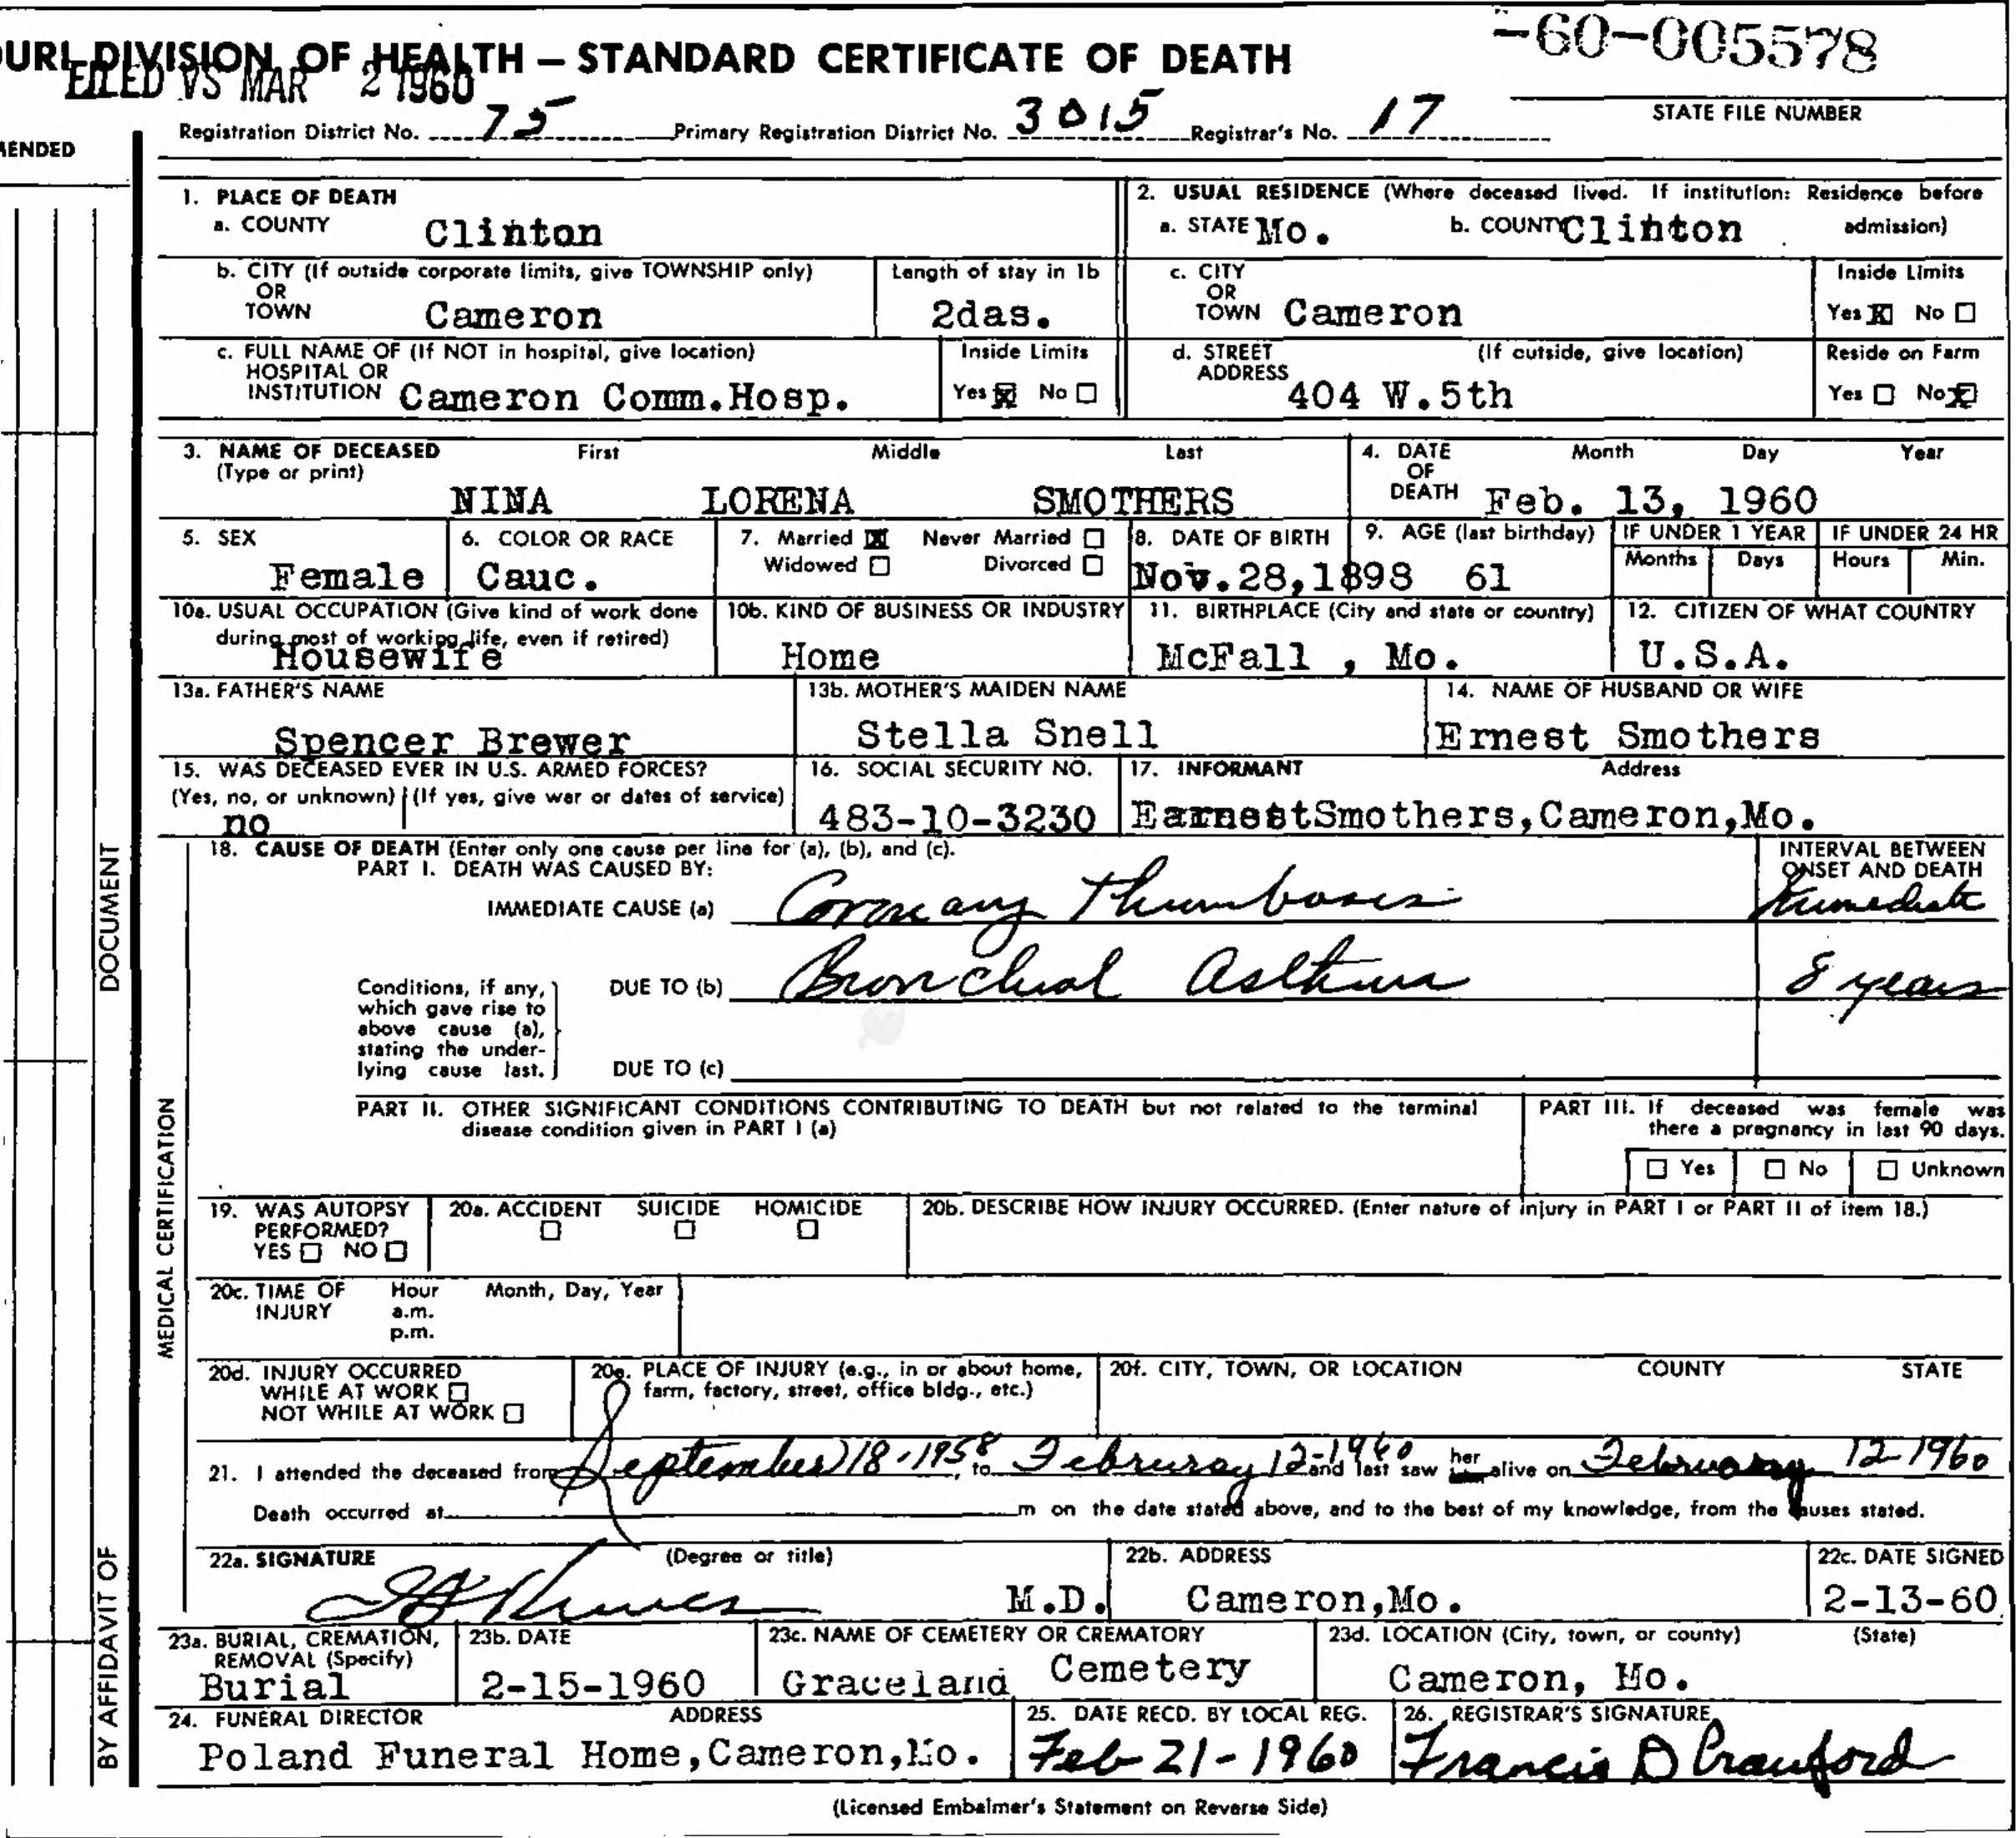 -60-005578
URI DIVISION OF HEALTH — STANDARD CERTIFICATE OF DEATH
FILED VS MAR 2 1960
STATE FILE NUMBER
Registration District No. 75 Primary Registration District No. 3015 Registrar's No. 17
ENDED
1. PLACE OF DEATH
a. COUNTY Clinton
2. USUAL RESIDENCE (Where deceased lived. If institution: Residence before admission)
a. STATE Mo. b. COUNTY Clinton
b. CITY (If outside corporate limits, give TOWNSHIP only) OR TOWN Cameron
Length of stay in 1b 2das.
c. CITY OR TOWN Cameron
Inside Limits Yes X No
c. FULL NAME OF (If NOT in hospital, give location) HOSPITAL OR INSTITUTION Cameron Comm.Hosp.
Inside Limits Yes X No
d. STREET ADDRESS (If outside, give location) 404 W.5th
Reside on Farm Yes No X
3. NAME OF DECEASED (Type or print) First Middle Last
NINA LORENA SMOTHERS
4. DATE OF DEATH Month Day Year
Feb. 13, 1960
5. SEX Female
6. COLOR OR RACE Cauc.
7. Married X Never Married
Widowed Divorced
8. DATE OF BIRTH Nov.28,1898
9. AGE (last birthday) 61
IF UNDER 1 YEAR Months Days
IF UNDER 24 HR Hours Min.
10a. USUAL OCCUPATION (Give kind of work done during most of working life, even if retired) Housewife
10b. KIND OF BUSINESS OR INDUSTRY Home
11. BIRTHPLACE (City and state or country) McFall , Mo.
12. CITIZEN OF WHAT COUNTRY U.S.A.
13a. FATHER'S NAME Spencer Brewer
13b. MOTHER'S MAIDEN NAME Stella Snell
14. NAME OF HUSBAND OR WIFE Ernest Smothers
15. WAS DECEASED EVER IN U.S. ARMED FORCES?
(Yes, no, or unknown) (If yes, give war or dates of service)
no
16. SOCIAL SECURITY NO. 483-10-3230
17. INFORMANT Address
EarnestSmothers,Cameron,Mo.
18. CAUSE OF DEATH (Enter only one cause per line for (a), (b), and (c).
PART I. DEATH WAS CAUSED BY:
INTERVAL BETWEEN ONSET AND DEATH
IMMEDIATE CAUSE (a) Coronary Thumbosis Immediate
Conditions, if any, which gave rise to above cause (a), stating the underlying cause last.
DUE TO (b) Bronchial Asthma 8 years
DUE TO (c)
PART II. OTHER SIGNIFICANT CONDITIONS CONTRIBUTING TO DEATH but not related to the terminal disease condition given in PART I (a)
PART III. If deceased was female was there a pregnancy in last 90 days.
Yes No Unknown
19. WAS AUTOPSY PERFORMED? YES NO
20a. ACCIDENT SUICIDE HOMICIDE
20b. DESCRIBE HOW INJURY OCCURRED. (Enter nature of injury in PART I or PART II of item 18.)
20c. TIME OF INJURY Hour a.m. p.m. Month, Day, Year
20d. INJURY OCCURRED WHILE AT WORK NOT WHILE AT WORK
20e. PLACE OF INJURY (e.g., in or about home, farm, factory, street, office bldg., etc.)
20f. CITY, TOWN, OR LOCATION COUNTY STATE
21. I attended the deceased from September 18-1958, to Februray 12-1960 and last saw her alive on February 12-1960
Death occurred at m on the date stated above, and to the best of my knowledge, from the causes stated.
22a. SIGNATURE (Degree or title) M.D.
22b. ADDRESS Cameron,Mo.
22c. DATE SIGNED 2-13-60
23a. BURIAL, CREMATION, REMOVAL (Specify) Burial
23b. DATE 2-15-1960
23c. NAME OF CEMETERY OR CREMATORY Graceland Cemetery
23d. LOCATION (City, town, or county) (State) Cameron, Mo.
24. FUNERAL DIRECTOR ADDRESS
Poland Funeral Home,Cameron,Mo.
25. DATE RECD. BY LOCAL REG. Feb 21-1960
26. REGISTRAR'S SIGNATURE Francis D Crawford
(Licensed Embalmer's Statement on Reverse Side)
DOCUMENT
MEDICAL CERTIFICATION
BY AFFIDAVIT OF